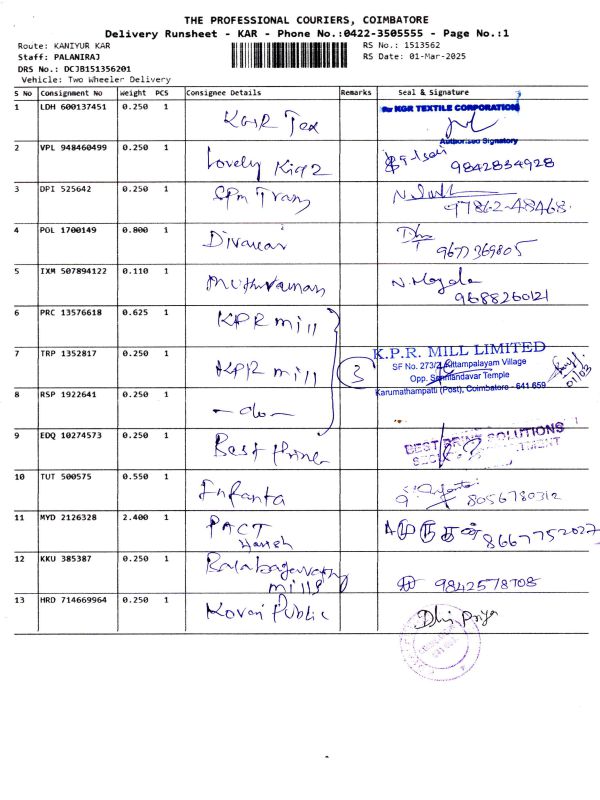 THE PROFESSIONAL COURIERS, COIMBATORE
Delivery Runsheet - KAR - Phone No.:0422-3505555 - Page No.:1
Route: KANIYUR KAR
RS No.: 1513562
Staff: PALANIRAJ
RS Date: 01-Mar-2025
DRS No.: DCJB151356201
Vehicle: Two Wheeler Delivery
S No Consignment No Weight PCS Consignee Details Remarks Seal & Signature
1 LDH 600137451 0.250 1 KGR Tex
KGR TEXTILE CORPORATION
Authorised Signatory
2 VPL 948460499 0.250 1 Lovely 9842834928
3 DPI 525642 0.250 1 SPM Trans 97862-48468
4 POL 1700149 0.800 1 Divakar 9677369805
5 IXM 507894122 0.110 1 Muthuraman 9688260121
6 PRC 13576618 0.625 1 KPR mill
7 TRP 1352817 0.250 1 KPR mill 3
K.P.R. MILL LIMITED
SF No. 273/2, Kittampalayam Village
Opp. Temple
Karumathampatti (Post), Coimbatore - 641 659
01/03
8 RSP 1922641 0.250 1 - do -
9 EDQ 10274573 0.250 1 Best
BEST PRINT SOLUTIONS
10 TUT 500575 0.550 1 Infanta 8056780312
11 MYD 2126328 2.400 1 PACT
Harish
முருகன் 8667752027
12 KKU 385387 0.250 1 mills 9842578708
13 HRD 714669964 0.250 1 Kovai Public Dhivpriya